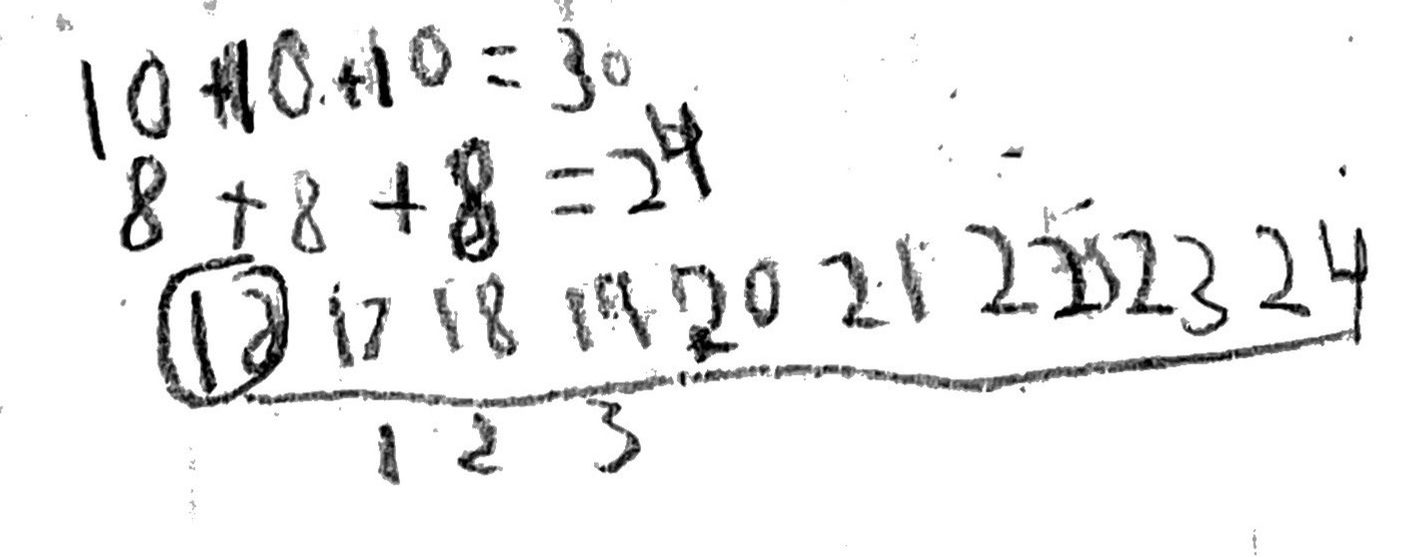 10+10+10=30
8+8+8=24
17 18 19 20 21 22 23 24
1 2 3